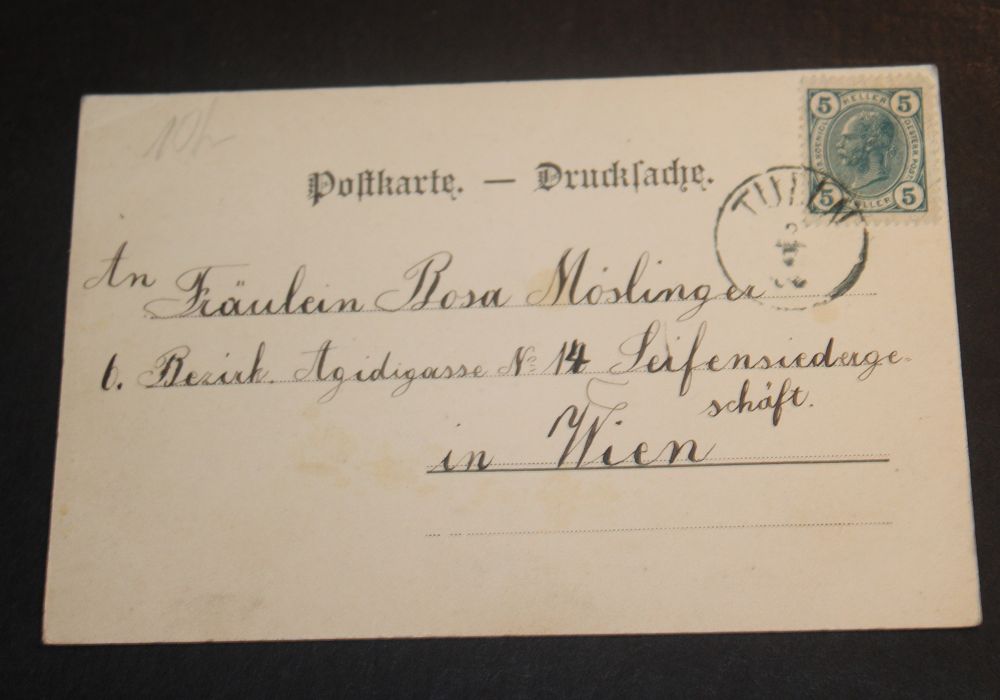 10h
Postkarte. — Drucksache.
5 HELLER 5
OESTERR. POST.
5 HELLER 5
TULLN
An
Fräulein Rosa Möslinger
6. Bezirk. Agidigasse No 14 Seifensiederge-
schäft.
in Wien